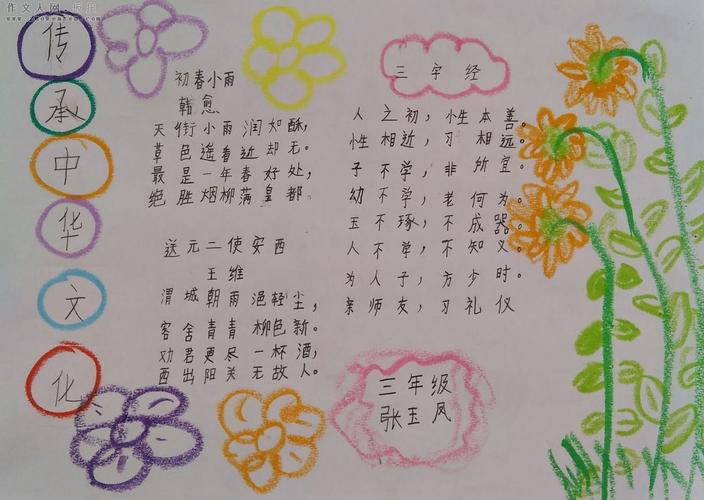 作文人网
传
承
中
华
文
化
初春小雨
韩愈
天街小雨润如酥，
草色遥看近却无。
最是一年春好处，
绝胜烟柳满皇都。
送元二使安西
王维
渭城朝雨浥轻尘，
客舍青青柳色新。
劝君更尽一杯酒，
西出阳关无故人。
三字经
人之初，性本善。
性相近，习相远。
子不学，非所宜。
幼不学，老何为。
玉不琢，不成器。
人不学，不知义。
为人子，方少时。
亲师友，习礼仪
三年级
张玉凤